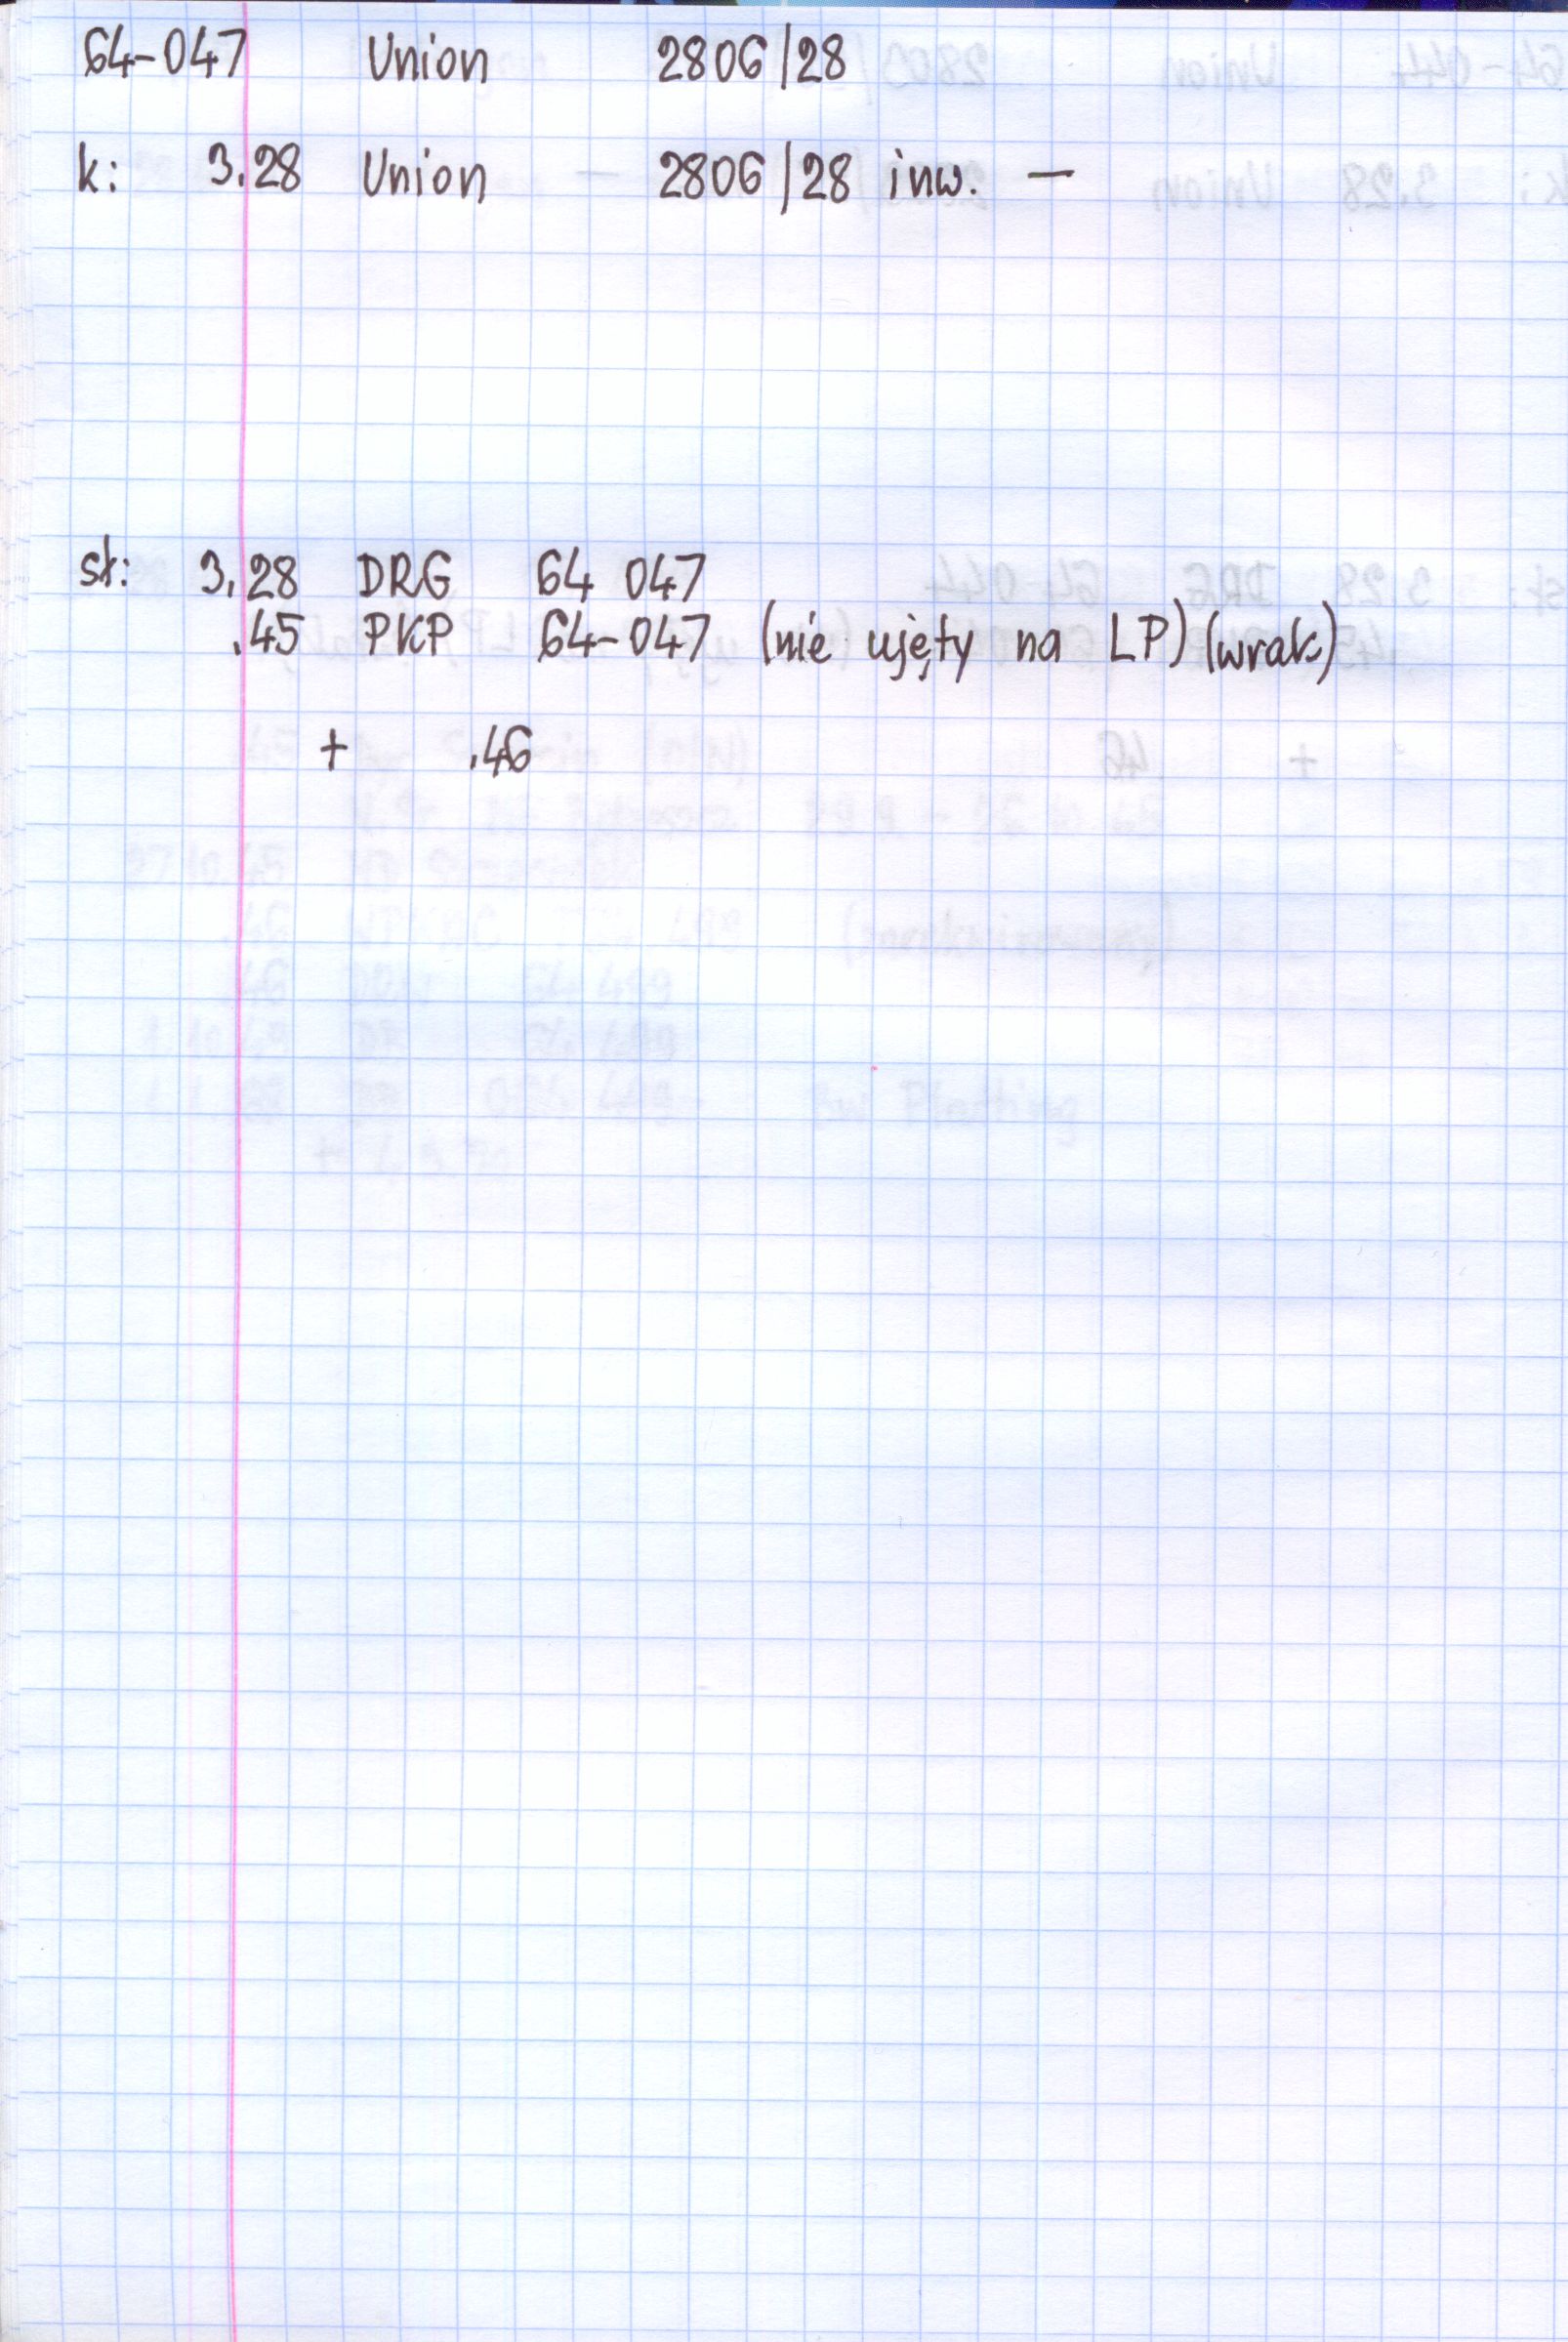 64-047 Union 2806/28
k: 3.28 Union 2806/28 inw. —
st: 3.28 DRG 64 047
.45 PKP 64-047 (nie ujęty na LP) (wrak)
+ .46